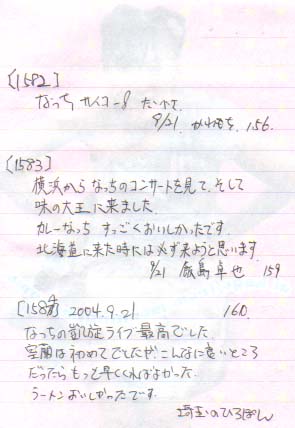 [1582]
なっち サイコー!!
9/21. 156.
[1583]
横浜から なっちのコンサートを見て、そして
味の大王に来ました.
カレーなっち すっごくおいしかったです.
北海道に来た時には必ず来ようと思います.
9/21 厳島卓也 159
[1584] 2004.9.21 160.
なっちの凱旋ライブ最高でした.
室蘭は初めてでしたが、こんなに良いところ
だったらもっと早くくればよかった.
ラーメンおいしかったです.
埼玉のひろぽん